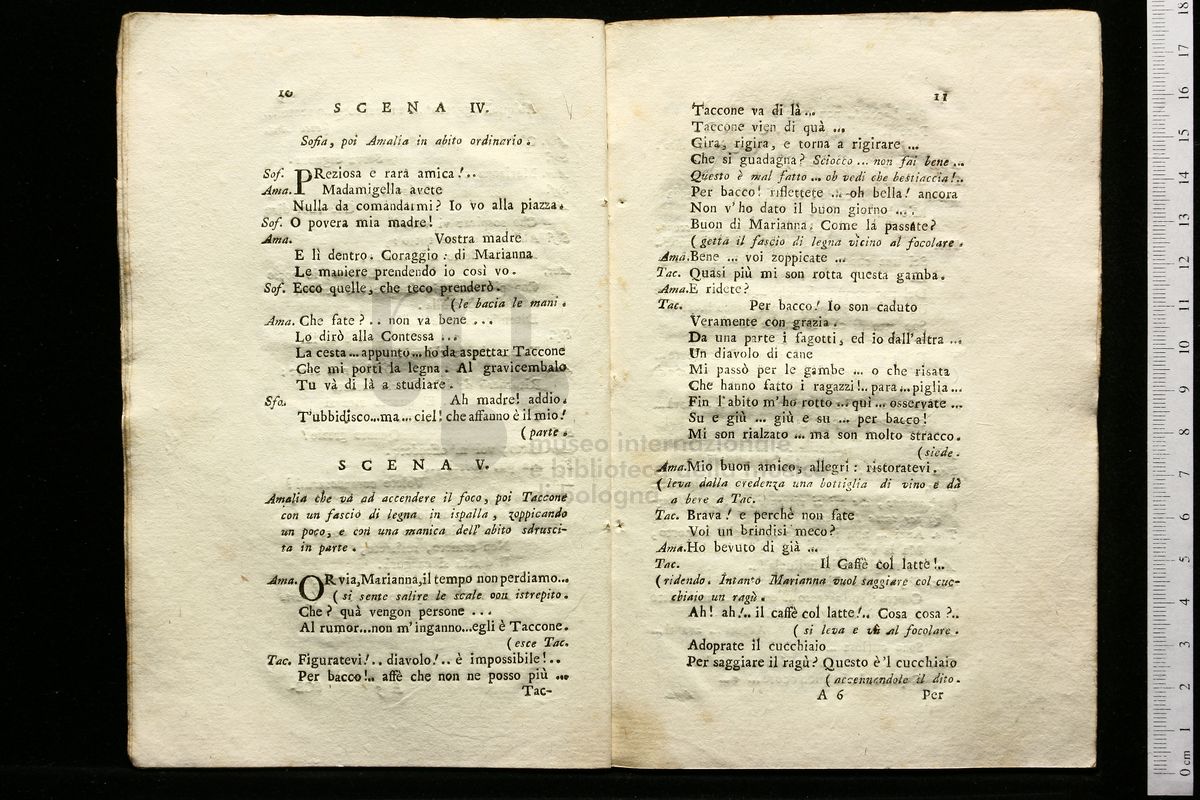 10
SCENA IV.
Sofia, poi Amalia in abito ordinario.
Sof. PReziosa e rara amica!..
Ama. Madamigella avete
Nulla da comandarmi? Io vo alla piazza.
Sof. O povera mia madre!
Ama. Vostra madre
E lì dentro. Coraggio: di Marianna
Le maniere prendendo io così vo.
Sof. Ecco quelle, che teco prenderò.
(le bacia le mani.
Ama. Che fate?.. non va bene ...
Lo dirò alla Contessa ...
La cesta... appunto... ho da aspettar Taccone
Che mi porti la legna. Al gravicembalo
Tu và di là a studiare.
Sfo. Ah madre! addio.
T'ubbidisco...ma... ciel! che affanno è il mio!
(parte.
SCENA V.
Amalia che và ad accendere il foco, poi Taccone
con un fascio di legna in ispalla, zoppicando
un poco, e con una manica dell' abito sdrusci-
ta in parte.
Ama. ORvia, Marianna, il tempo non perdiamo...
(si sente salire le scale con istrepito.
Che? quà vengon persone ...
Al rumor...non m'inganno...egli è Taccone.
(esce Tac.
Tac. Figuratevi!.. diavolo!.. è impossibile!..
Per bacco!.. affè che non ne posso più ...
Tac-
11
Taccone va di là ...
Taccone vien di quà ...
Gira, rigira, e torna a rigirare ...
Che si guadagna? Sciocco ... non fai bene ...
Questo è mal fatto ... oh vedi che bestiaccia!..
Per bacco! riflettete ... oh bella! ancora
Non v'ho dato il buon giorno ...
Buon di Marianna. Come la passate?
(getta il fascio di legna vicino al focolare.
Ama. Bene ... voi zoppicate ...
Tac. Quasi più mi son rotta questa gamba.
Ama. E ridete?
Tac. Per bacco! Io son caduto
Veramente con grazia.
Da una parte i fagotti, ed io dall'altra ...
Un diavolo di cane
Mi passò per le gambe ... o che risata
Che hanno fatto i ragazzi!.. para... piglia...
Fin l'abito m'ho rotto ... qui ... osservate ...
Su e giù ... giù e su ... per bacco!
Mi son rialzato ... ma son molto stracco.
(siede.
Ama. Mio buon amico, allegri: ristoratevi.
(leva dalla credenza una bottiglia di vino e dà
a bere a Tac.
Tac. Brava! e perchè non fate
Voi un brindisi meco?
Ama. Ho bevuto di già ...
Tac. Il Caffè col latte!..
(ridendo. Intanto Marianna vuol saggiare col cuc-
chiaio un ragù.
Ah! ah!.. il caffè col latte!.. Cosa cosa?..
(si leva e và al focolare.
Adoprate il cucchiaio
Per saggiare il ragù? Questo è 'l cucchiaio
(accennandole il dito.
A 6 Per
museo internazionale
e biblioteca della musica
di bologna
0 cm 1 2 3 4 5 6 7 8 9 10 11 12 13 14 15 16 17 18